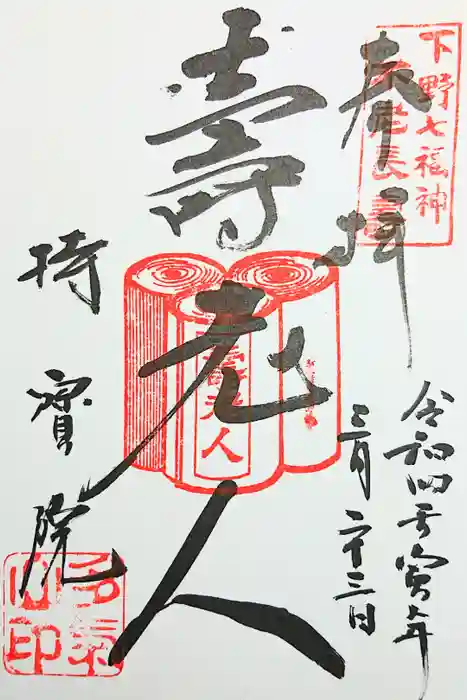 下野七福神
不老長寿
奉拝
令和四壬寅年
三月二十三日
壽老人
壽老人
持寶院